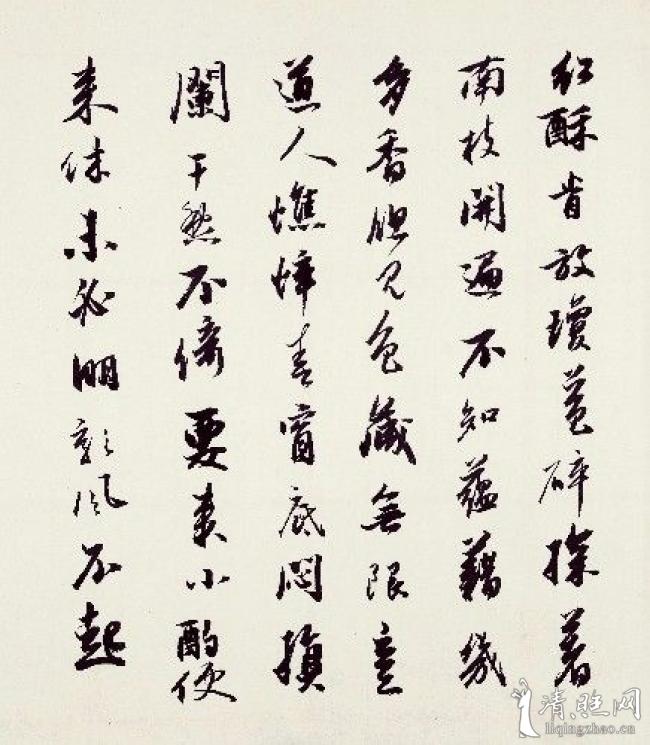 紅酥肯放瓊苞碎探著
南枝開遍不知蘊藉幾
多香但見包藏無限意
道人憔悴春窗底悶損
闌干愁不倚要來小酌便
來休未必明朝風不起
清照网
liqingzhao.cn